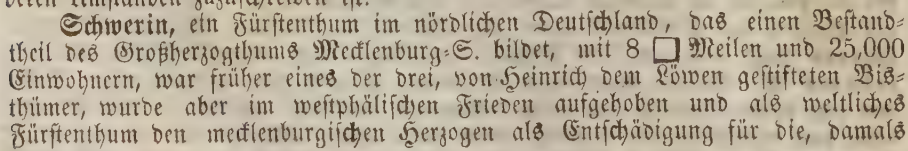 Schwerin, ein Fürstenthum im nördlichen Deutschland, das einen Bestand-
theil des Großherzogthums Mecklenburg-S. bildet, mit 8 □ Meilen und 25,000
Einwohnern, war früher eines der drei, von Heinrich dem Löwen gestifteten Bis-
thümer, wurde aber im westphälischen Frieden aufgehoben und als weltliches
Fürstenthum den mecklenburgischen Herzogen als Entschädigung für die, damals